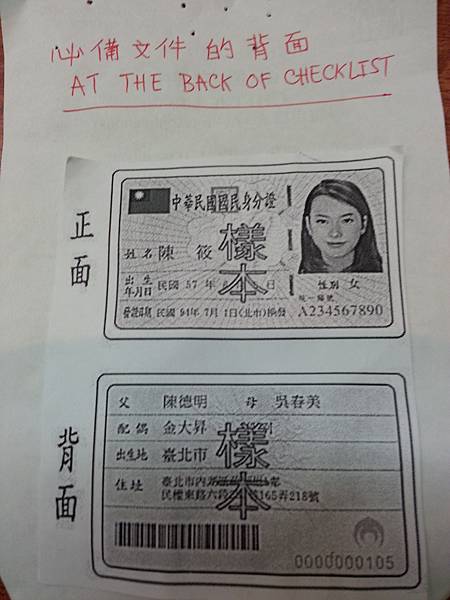 必備文件的背面
AT THE BACK OF CHECKLIST
正面
中華民國國民身分證
樣本
姓名 陳 筱
出生年月日 民國 57 年 日
性別 女
統一編號
A234567890
發證日期 民國 94年 7月 1日(北市)換發
背面
父 陳德明 母 吳春美
配偶 金大昇
樣本
出生地 臺北市
住址 臺北市內
民權東路六段 165弄218號
0000000105